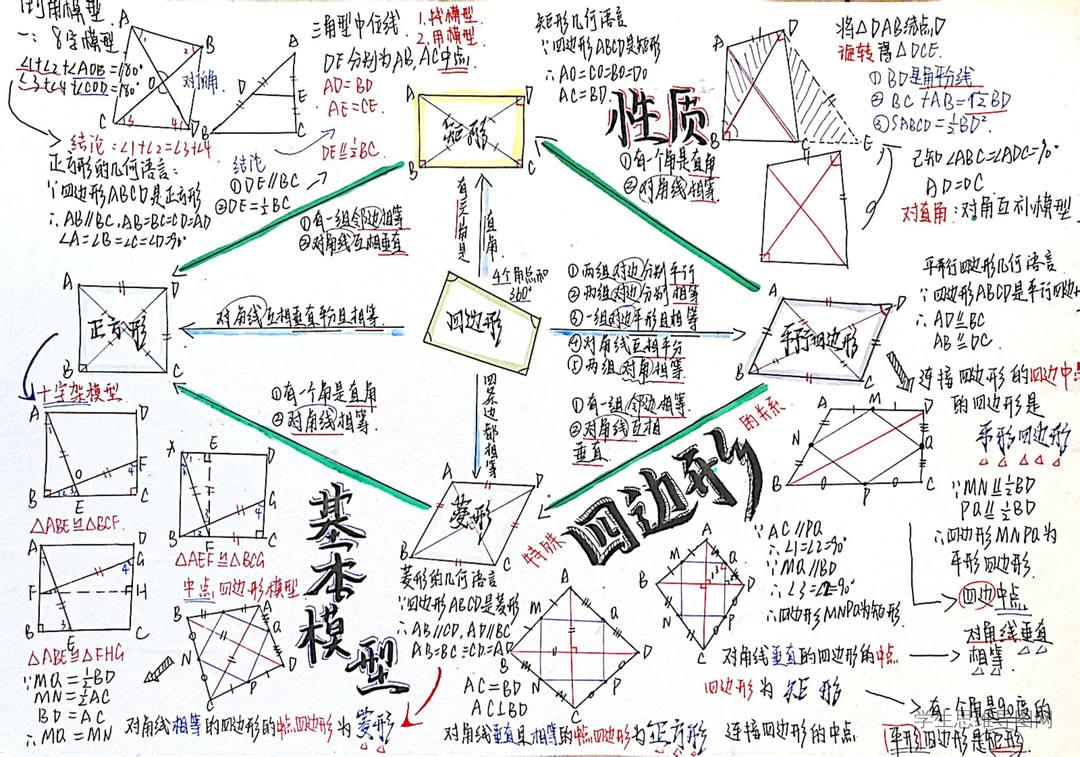 倒角模型
一: 8字模型
∠1+∠2+∠AOB=180°
∠3+∠4+∠COD=180°
对顶角
结论:∠1+∠2=∠3+∠4
三角型中位线
1.找模型
2.用模型
DE分别为AB,AC中点
AD=BD
AE=CE.
DE⫽½BC.
结论
①DE∥BC
②DE=½BC
正方形的几何语言:
∵四边形ABCD是正方形
∴AB∥BC.AB=BC=CD=AD
∠A=∠B=∠C=∠D=90°
矩形几何语言
∵四边形ABCD是矩形
∴AO=CO=BO=DO
AC=BD
性质
①有一个角是直角
②对角线相等.
将△DAB绕点D
旋转得△DCE.
①BD是角平分线
②BC+AB=√2BD
③SABCD=½BD².
已知∠ABC=∠ADC=90°
AD=DC
对直角:对角互补模型
矩形
①有一组邻边相等
②对角线互相垂直
有三个角是
直角
4个角总和
360°
四边形
对角线互相垂直平分且相等.
正方形
①两组对边分别平行
②两组对边分别相等
③一组对边平形且相等
④对角线互相平分
⑤两组对角相等.
平行四边形
平行四边形几何语言
∵四边形ABCD是平行四边
∴AD⫽BC
AB⫽DC
连接四边形的四边中点
的四边形是
平形四边形
∵MN⫽½BD
PQ⫽½BD
∴四边形MNPQ为
平形四边形
四边中点
对角线垂直
相等
十字架模型
△ABE≌△BCF.
△AEF≌△BCG
△ABE≌△FHG
①有一个角是直角
②对角线相等.
四条边都相等
①有一组邻边相等.
②对角线互相
垂直
菱形
特殊
四边形
的关系
基本模型
中点四边形模型
∵MQ=½BD
MN=½AC
BD=AC
∴MQ=MN
对角线相等的四边形的中点四边形为菱形
菱形的几何语言
∵四边形ABCD是菱形
∴AB∥CD,AD∥BC
AB=BC=CD=AD
AC=BD
AC⊥BD
对角线垂直且相等的中点四边形为正方形
∵AC∥PQ
∴∠1=∠2=90°
∵MQ∥BD
∴∠3=∠2=90°
∴四边形MNPQ为矩形.
对角线垂直的四边形的中点
四边形为矩形
连接四边形的中点
有一个角是90度的
平形四边形是矩形